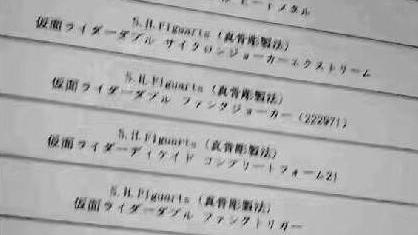 ヒートメタル
S.H.Figuarts (真骨彫製法)
仮面ライダーダブル サイクロンジョーカーエクストリーム
S.H.Figuarts (真骨彫製法)
仮面ライダーダブル ファングジョーカー (222971)
S.H.Figuarts (真骨彫製法)
仮面ライダーディケイド コンプリートフォーム21
S.H.Figuarts (真骨彫製法)
仮面ライダーダブル ファングトリガー